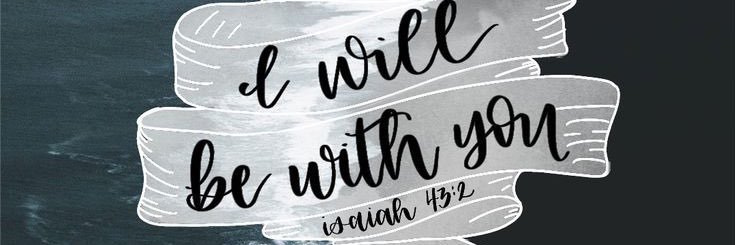 I will
be with you
isaiah 43:2